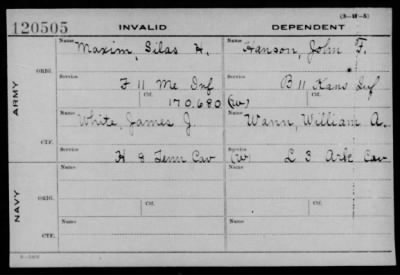 (3-M-5)
120505 INVALID DEPENDENT
Name Maxim, Silas H. Name Hanson, John F.
ORIG.
Service F 11 Me Inf Service B 11 Kans Inf
Ctf. 170.680 Ctf. (W)
ARMY
Name White, James J. Name Wann, William A.
CTF.
Service H 8 Tenn Cav Service (W) L 3 Ark Cav
Name Name
ORIG.
NAVY
Ctf. Ctf.
Name Name
CTF.